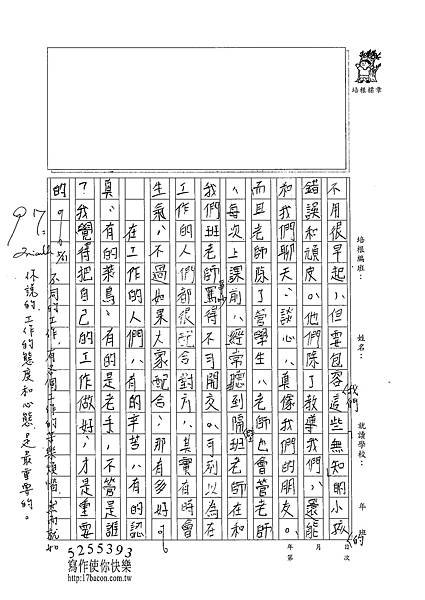 培根標章
培根編班：
姓名：
就讀學校：
年 班
年 月 日
第 次
不用很早起，但要包容這些無知的小孩
我們
的
錯誤和頑皮。他們除了教導我們，還能
和我們聊天、談心，真像我們的朋友。
而且老師除了管學生，老師也會管老師
，每次上課前，經常聽到隔壁班老師在和
我們班老師罵得不可開交。可別以為在
工作的人們都很配合對方，其實有時會
生氣，不過如果大家配合，那有多好。
在工作的人們，有的辛苦，有的認
真，有的菜鳥，有的是老手，不管是誰
？我覺得把自己的工作做好，才是重要
的
97
不同的工作，有
你說的，工作的態度和心態，是最重要的。
5255393
寫作使你快樂
http://17bacon.com.tw/